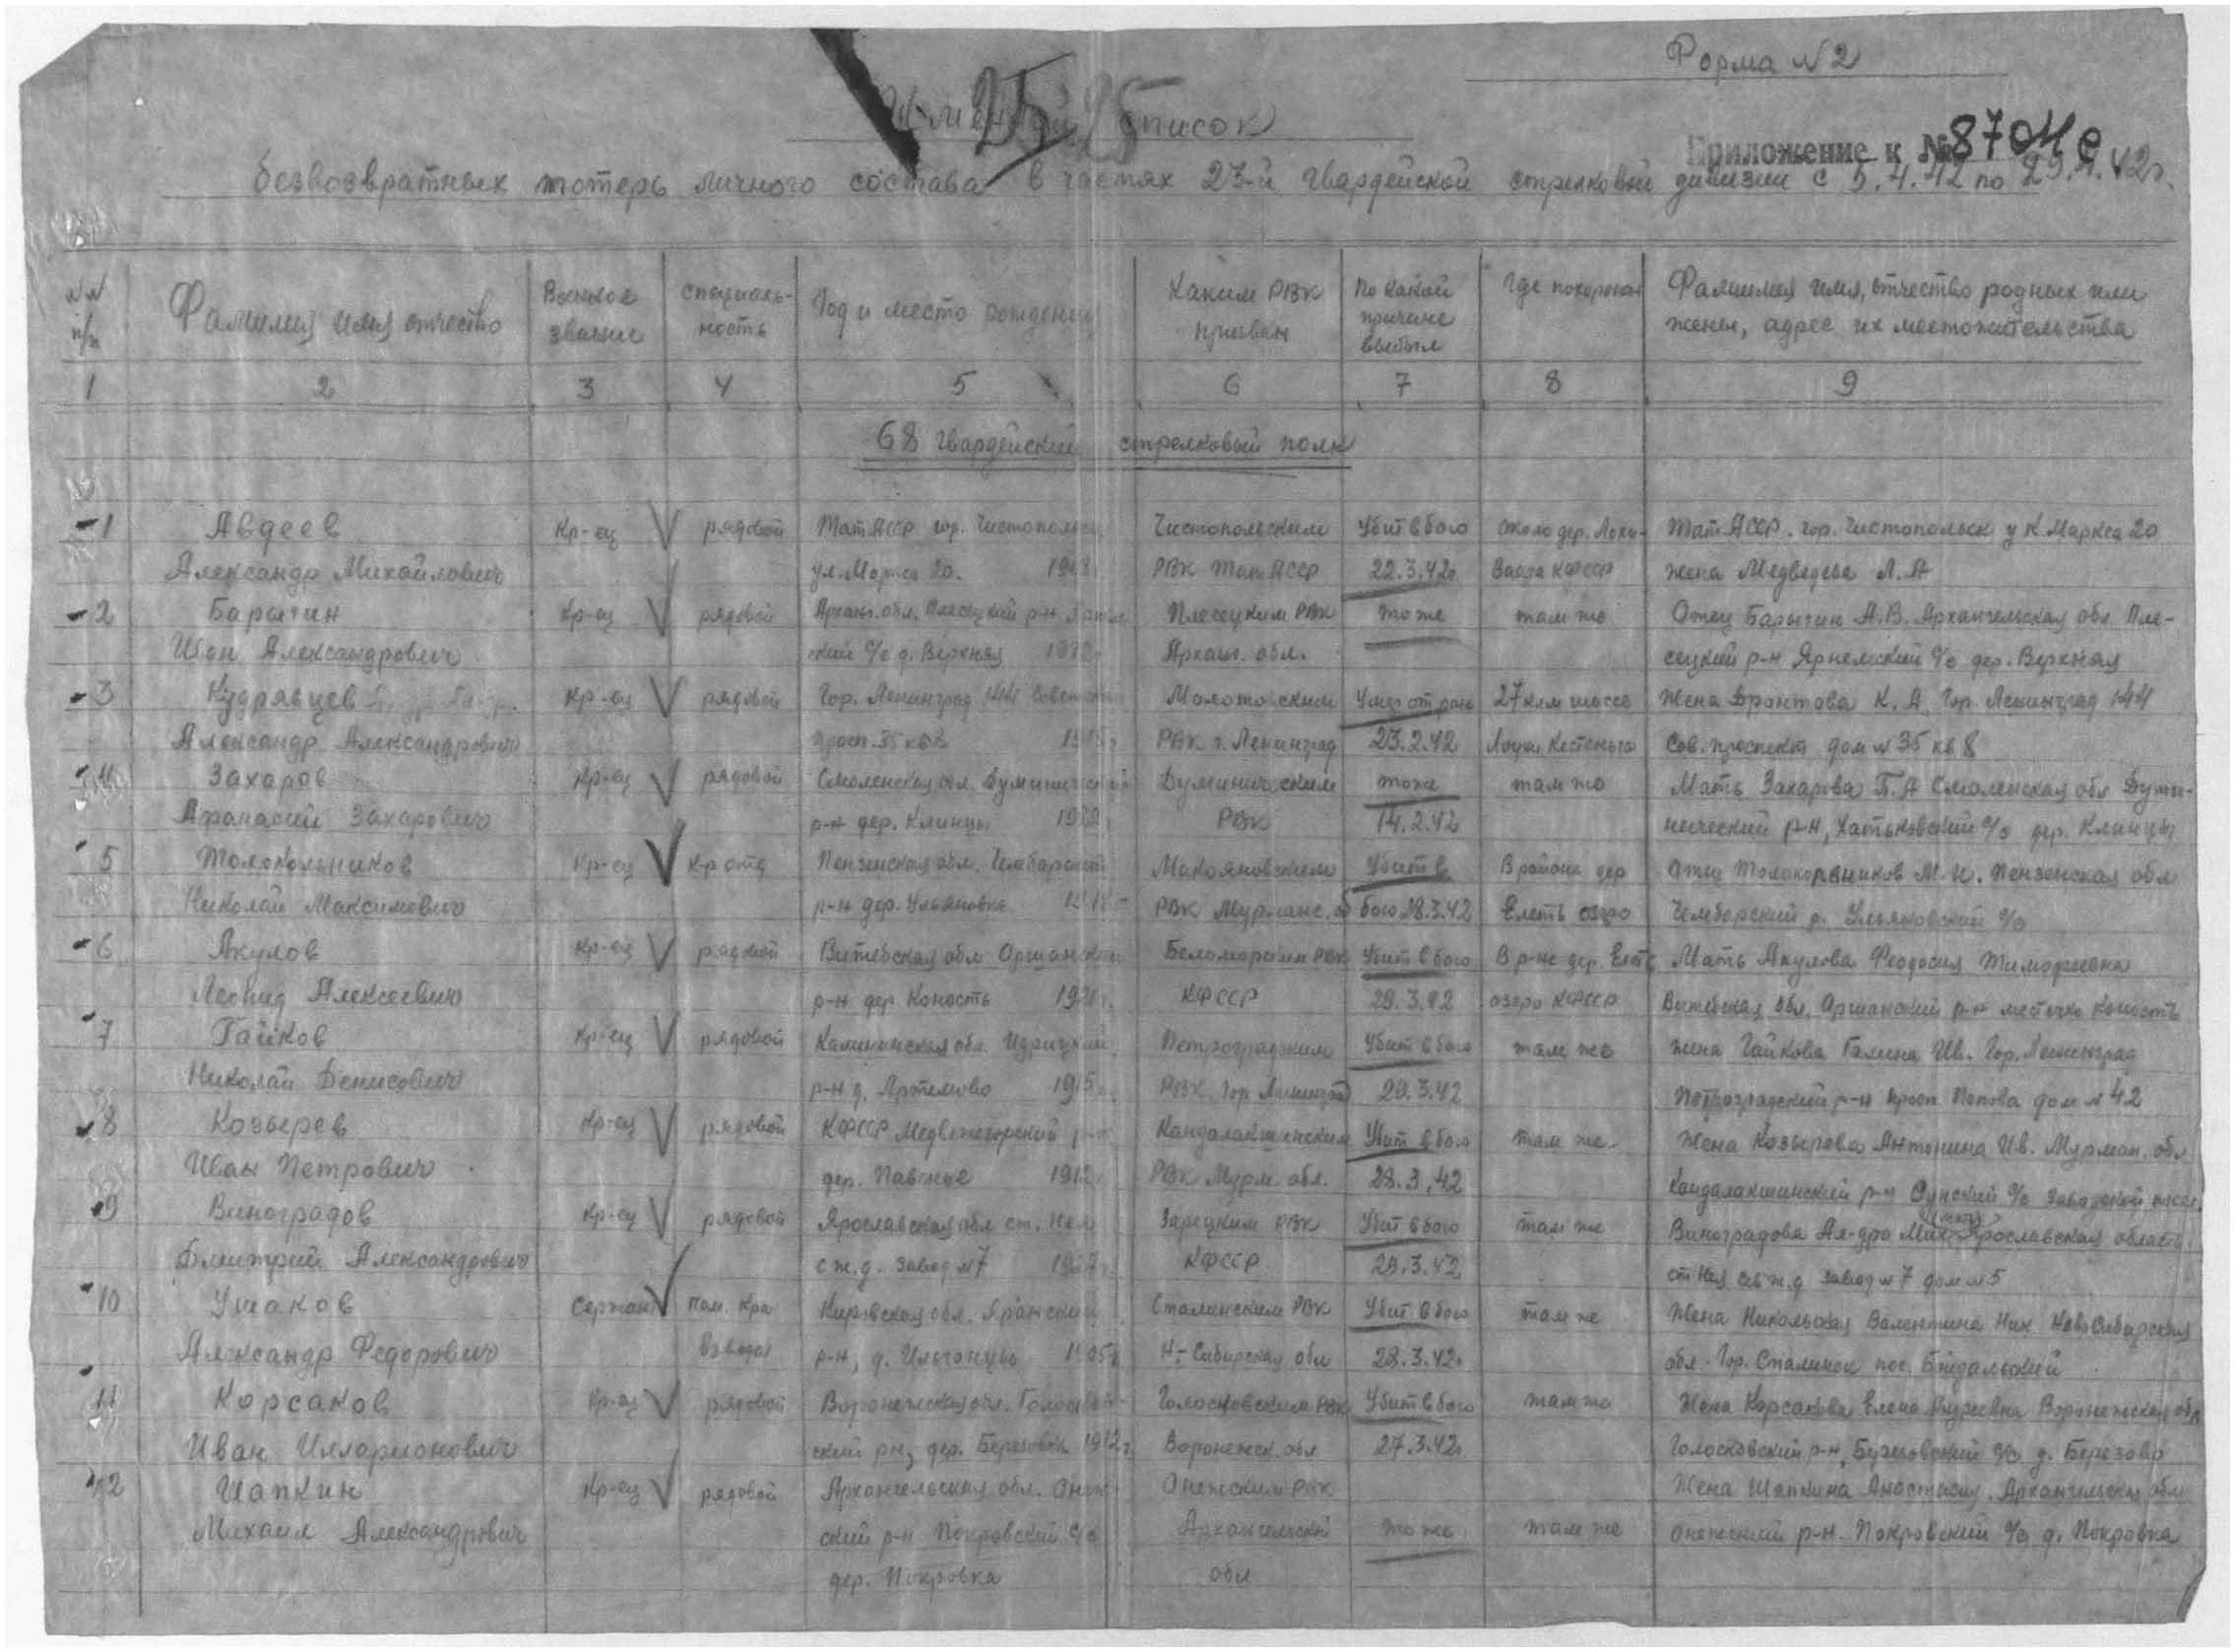 Форма №2
список
Приложение к № 870
безвозвратных потерь личного состава в частях 23-й гвардейской стрелковой дивизии с 5.4.42 по 29.4.42г.
№№ п/п
Фамилия имя отчество
Военное звание
Специаль-ность
Год и место рождения
Каким РВК призван
По какой причине выбыл
Где похоронен
Фамилия имя, отчество родных или жены, адрес их местожительства
1 2 3 4 5 6 7 8 9
68 гвардейский стрелковый полк
1 Авдеев Кр-ец рядовой Тат.АССР гор. Чистополь Чистопольским Убит в бою около дер. Лохи- Тат.АССР. гор. Чистопольск у К.Маркса 20
Александр Михайлович ул. Маркса 20. РВК Тат АССР 22.3.42г Ваара КФССР жена Медведева Л. А
2 Барыгин Кр-ец рядовой Арханг. обл. Плесецкий р-н Плесецким РВК то же там же Отец Барыгин А.В. Архангельская обл. Пле-
Иван Александрович ский с/с д. Верхняя Арханг. обл. сецкий р-н Ярнемский с/с дер. Верхняя
3 Кудрявцев Кр-ец рядовой Гор. Ленинград Советский Молотовским Умер от ран 27 клм шоссе Жена К. А. Гор. Ленинград 144
Александр Александрович просп. 35 кв 8 РВК г. Ленинград 23.2.42 Лоухи Кестеньга Сов. проспект дом №35 кв 8
4 Захаров Кр-ец рядовой Смоленская обл. Думинический Думиническим то же там же Мать Захарова Смоленская обл Думи-
Афанасий Захарович р-н дер. Клинцы РВК 14.2.42 нический р-н, Хатьковский с/с дер. Клинцы
5 Толокольников Кр-ец кр отд Пензенская обл. Чембарский Убит в В районе дер Отец М.И. Пензенская обл
Николай Максимович р-н дер. Ульяновка РВК Мурманс. об бою 28.3.42 Елеть озеро Чембарский р. Ульяновский с/с
6 Акулов Кр-ец рядовой Витебская обл Оршанский Беломорским РВК Убит в бою В р-не дер. Елеть Мать Акулова Феодосия Тимофеевна
Леонид Алексеевич р-н дер. Коность КФССР 29.3.42 озеро КФССР Витебская обл. Оршанский р-н местечко Коность
7 Гайков Кр-ец рядовой Калининская обл. Идрицкий Петроградским Убит в бою там же жена Гайкова Галина Ив. Гор. Ленинград
Николай Денисович р-н д. Артемово 1915г. РВК. Гор Ленинград 29.3.42 Петроградский р-н просп Попова дом №42
8 Козырев Кр-ец рядовой КФССР Медвежегорский Кандалакшинским Убит в бою там же. Жена Козырева Антонина Ив. Мурман. обл
Иван Петрович дер. 1912г РВК Мурм. обл. 28.3.42 Кандалакшинский р-н с/с
9 Виноградов Кр-ец рядовой Ярославская обл ст. Нея Зарецким РВК Убит в бою там же Виноградова Ал-дра Мих Ярославская область
Дмитрий Александрович с ж.д. завод №7 КФССР 29.3.42 ст Нея сев ж.д завод №7 дом №5
10 Ушаков Сержант пом. к-ра Кировская обл. Яранский Сталинским РВК Убит в бою там же Жена Никольская Валентина Ник. Новосибирская
Александр Федорович взвода р-н, д. 1905г Н-Сибирская обл 28.3.42г обл. Гор. Сталинск пос.
11 Корсаков Кр-ец рядовой Воронежская обл. Голоснов- Голосновским РВК Убит в бою там же Жена Корсакова Елена Воронежская обл
Иван Илларионович ский р-н, дер. Березовка 1912г Воронежск. обл 27.3.42г Голосновский р-н, с/с д. Березово
12 Шапкин Кр-ец рядовой Архангельская обл. Онеж- Онежским РВК Жена Шапкина Анастасия. Архангельская обл
Михаил Александрович ский р-н Покровский с/с Архангельской то же там же онежский р-н. Покровский с/с д. Покровка
дер. Покровка обл